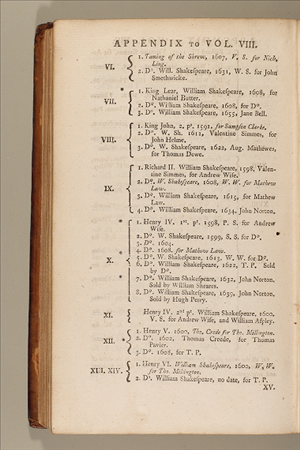 APPENDIX TO VOL. VIII.
VI.
1. Taming of the Shrew, 1607, V. S. for Nich.
Ling.
2. Do. Will. Shakespeare, 1631, W. S. for John
Smethwicke.
VII.
1. King Lear, William Shakespeare, 1608, for
Nathaniel Butter.
2. Do. William Shakespeare, 1608, for Do.
3. Do. William Shakespeare, 1655, Jane Bell.
VIII.
1. King John, 2. pt. 1591, for Sampson Clarke.
2. Do. W. Sh. 1611, Valentine Simmes, for
John Helme.
3. Do. W. Shakespeare, 1622, Aug. Mathewes,
for Thomas Dewe.
IX.
1. Richard II. William Shakespeare, 1598, Valen-
tine Simmes, for Andrew Wise.
2. Do. W. Shakespeare, 1608, W. W. for Mathew
Law.
3. Do. William Shakespeare, 1615, for Mathew
Law.
4. Do. William Shakespeare, 1634, John Norton.
X.
1. Henry IV. 1st. pt. 1598, P. S. for Andrew
Wise.
2. Do. W. Shakespeare, 1599, S. S. for Do.
3. Do. 1604.
4. Do. 1608. for Mathew Law.
5. Do. W. Shakespeare, 1613. W. W. for Do.
6. Do. William Shakespeare, 1622, T. P. Sold
by Do.
7. Do. William Shakespeare, 1632, John Norton.
Sold by William Sheares.
8. Do. William Shakespeare, 1639, John Norton.
Sold by Hugh Perry.
XI.
Henry IV. 2nd pt. William Shakespeare, 1600,
V. S. for Andrew Wise, and William Aspley.
XII.
1. Henry V. 1600, Tho. Creede for Tho. Millington.
2. Do. 1602, Thomas Creede, for Thomas
Pavier.
3. Do. 1608, for T. P.
XIII, XIV.
1. Henry VI. William Shakespeare, 1600, W. W.
for Tho. Millington.
2. Do. William Shakespeare, no date, for T. P.
XV.